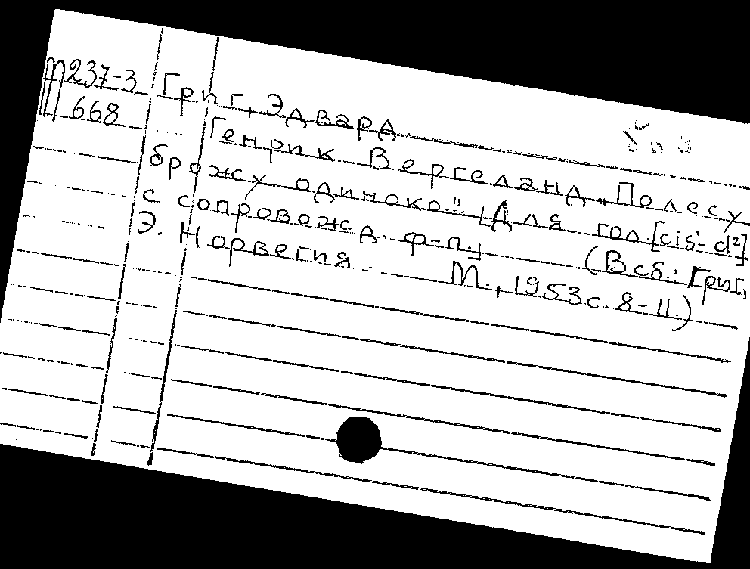 М237-3 Григ, Эдвард
668 Генрик Вергеланд. „По лесу
брожу одиноко" [Для гол. [cis¹-d²]
с сопровожд. ф-п.] (В сб.: Григ,
Э. Норвегия М., 1953 с. 8-11)